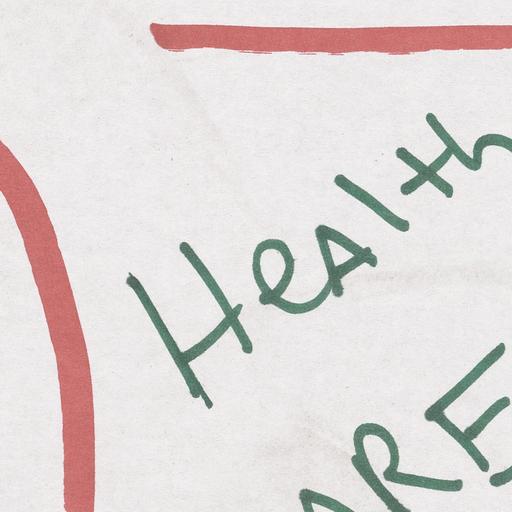 Health
ARE